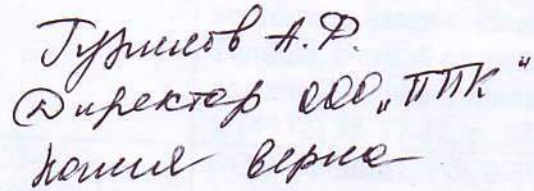 А.Ф.
Директор ООО „ППК"
Копия верна